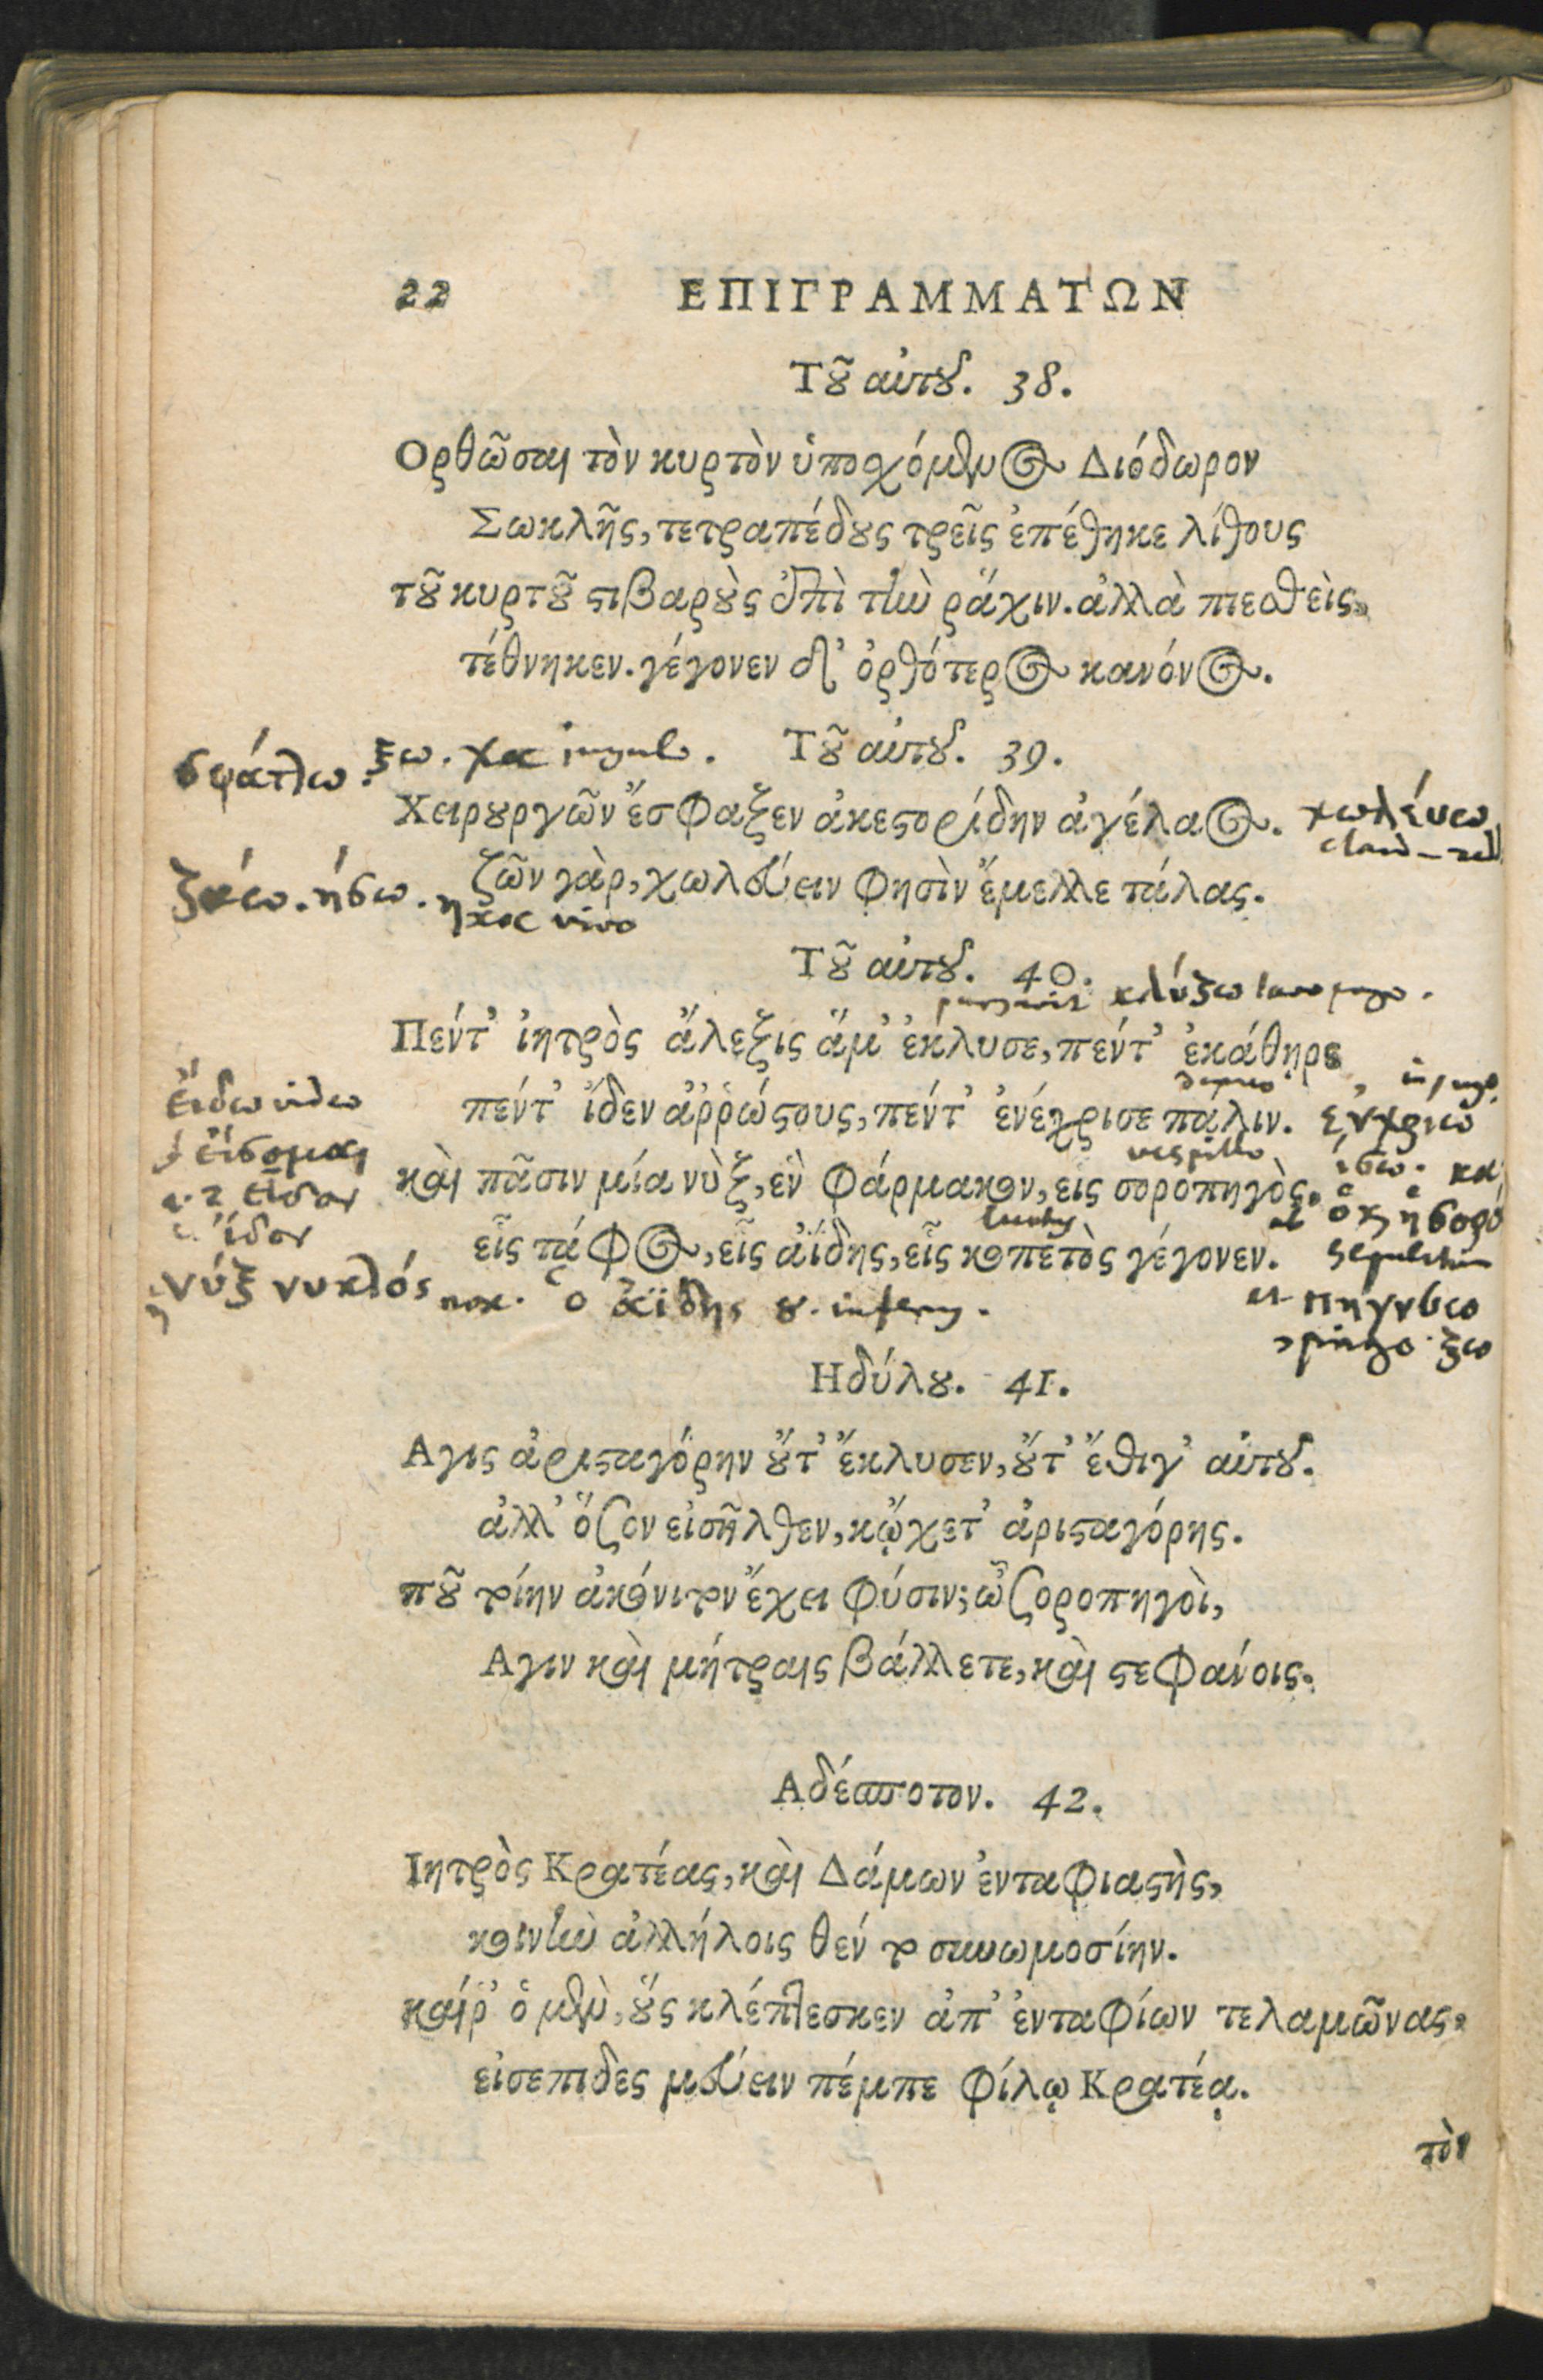 22 ΕΠΙΓΡΑΜΜΑΤΩΝ
Τοῦ αὐτοῦ. 38.
Ορθῶσαι τὸν κυρτὸν ὑποσχόμενος Διόδωρον
Σωκλῆς, τετραπέδους τρεῖς ἐπέθηκε λίθους
τοῦ κυρτοῦ στιβαροὺς ἐπὶ τὴν ῥάχιν. ἀλλὰ πιεσθεὶς
τέθνηκεν. γέγονεν δ' ὀρθότερος κανόνος.
σφάττω. ξω. χα jugul.
Τοῦ αὐτοῦ. 39.
Χειρουργῶν ἔσφαξεν ἀκεστορίδην ἀγέλαος. χωλέυω
ζῶν γὰρ, χωλεύειν φησὶν ἔμελλε τάλας.
ζάω. ήσω. ηκα vivo
Τοῦ αὐτοῦ. 40.
κλύζω lavo purgo.
Πέντ' ἰητρὸς ἄλεξις ἅμ' ἐκλυσε, πέντ' ἐκάθηρε
πέντ' ἴδεν ἀῤῥώστους, πέντ' ἐνέχρισε πάλιν.
εἴδω video
εἴσομαι
vespillo
καὶ πᾶσιν μία νὺξ, ἓν φάρμακον, εἷς σοροπηγὸς.
a. 2 εἶδον
ἴδον
luctus
εἷς τάφος, εἷς ἀΐδης, εἷς κοπετὸς γέγονεν.
sepulchrum
νύξ νυκτός nox. ὁ ἀΐδης ου. infernus.
πηγνύω
ξω
Ηδύλου. 41.
Αγις ἀρισταγόρην οὔτ' ἔκλυσεν, οὔτ' ἔθιγ' αὐτοῦ.
ἀλλ' ὅζον εἰσῆλθεν, κᾤχετ' ἀρισταγόρης.
ποῦ τοίην ἀκόνιτον ἔχει φύσιν; ὦ ζοροπηγοὶ,
Αγιν καὶ μήτραις βάλλετε, καὶ στεφάνοις.
Αδέσποτον. 42.
Ιητρὸς Κρατέας, καὶ Δάμων ἐνταφιαστὴς,
κοινὴν ἀλλήλοις θέντο συνωμοσίην.
καί ῥ' ὁ μὲν, οὓς κλέπτεσκεν ἀπ' ἐνταφίων τελαμῶνας
εἰσεπιδεσμεύειν πέμπε φίλῳ Κρατέᾳ.
τὸν